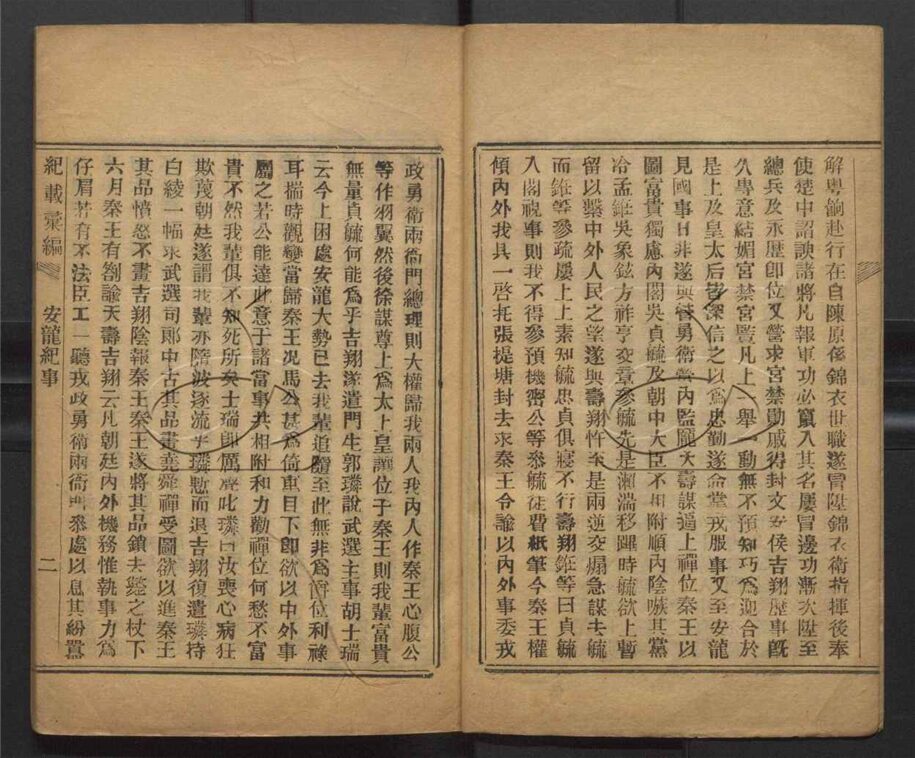 解粵餉赴行在自陳原係錦衣世職遂冒陞錦衣衛指揮後奉
使楚中諂諛諸將凡報軍功必竄入其名屢冒邊功漸次陞至
總兵及永歷卽位又營求宮禁勛戚得封文安侯吉翔歷事旣
久專意結媚宮禁宮監凡上一舉一動無不預知巧爲迎合於
是上及皇太后皆深信之以爲忠勤遂命掌戎服事又至安龍
見國事日非遂與管勇衛營內監龐天壽謀逼上禪位秦王以
圖富貴獨慮內閣吳貞毓及朝中大臣不相附順內陰嗾其黨
冷孟銋吳象鉉方祚亨交章參毓先是瀨湍移蹕時毓欲上暫
留以繫中外人民之望遂與壽翔忤至是兩逆交煽急謀去毓
而銋等參疏屢上上素知毓忠貞俱寢不行壽翔銋等曰貞毓
入閣視事則我不得參預機密公等叅毓徒費紙筆今秦王權
傾內外我具一啓托張提塘封去求秦王令諭以內外事委戎
政勇衛兩衙門總理則大權歸我兩人我內人作秦王心腹公
等作羽翼然後徐謀尊上爲太上皇讓位于秦王則我輩富貴
無量貞毓何能爲乎吉翔遂遣門生郭璘說武選主事胡士瑞
云今上困處安龍大勢已去我輩追隨至此無非爲爵位利祿
耳揣時觀變當歸秦王况馬公甚爲倚重目下卽欲以中外事
屬之若公能達此意于諸當事共相附和力勸禪位何愁不富
貴不然我輩俱不知死所矣士瑞卽厲聲叱璘曰汝喪心病狂
欺蔑朝廷遂謂我輩亦隨波逐流乎璘慙而退吉翔復遣璘持
白綾一幅求武選司郎中古其品畫堯舜禪受圖欲以進秦王
其品憤怒不畫吉翔陰報秦王秦王遂將其品鎖去斃之杖下
六月秦王有劄諭天壽吉翔云凡朝廷內外機務惟執事力爲
仔肩若有不法臣工一聽戎政勇衛兩衙門叅處以息其紛囂
紀載彙編 安龍紀事 二